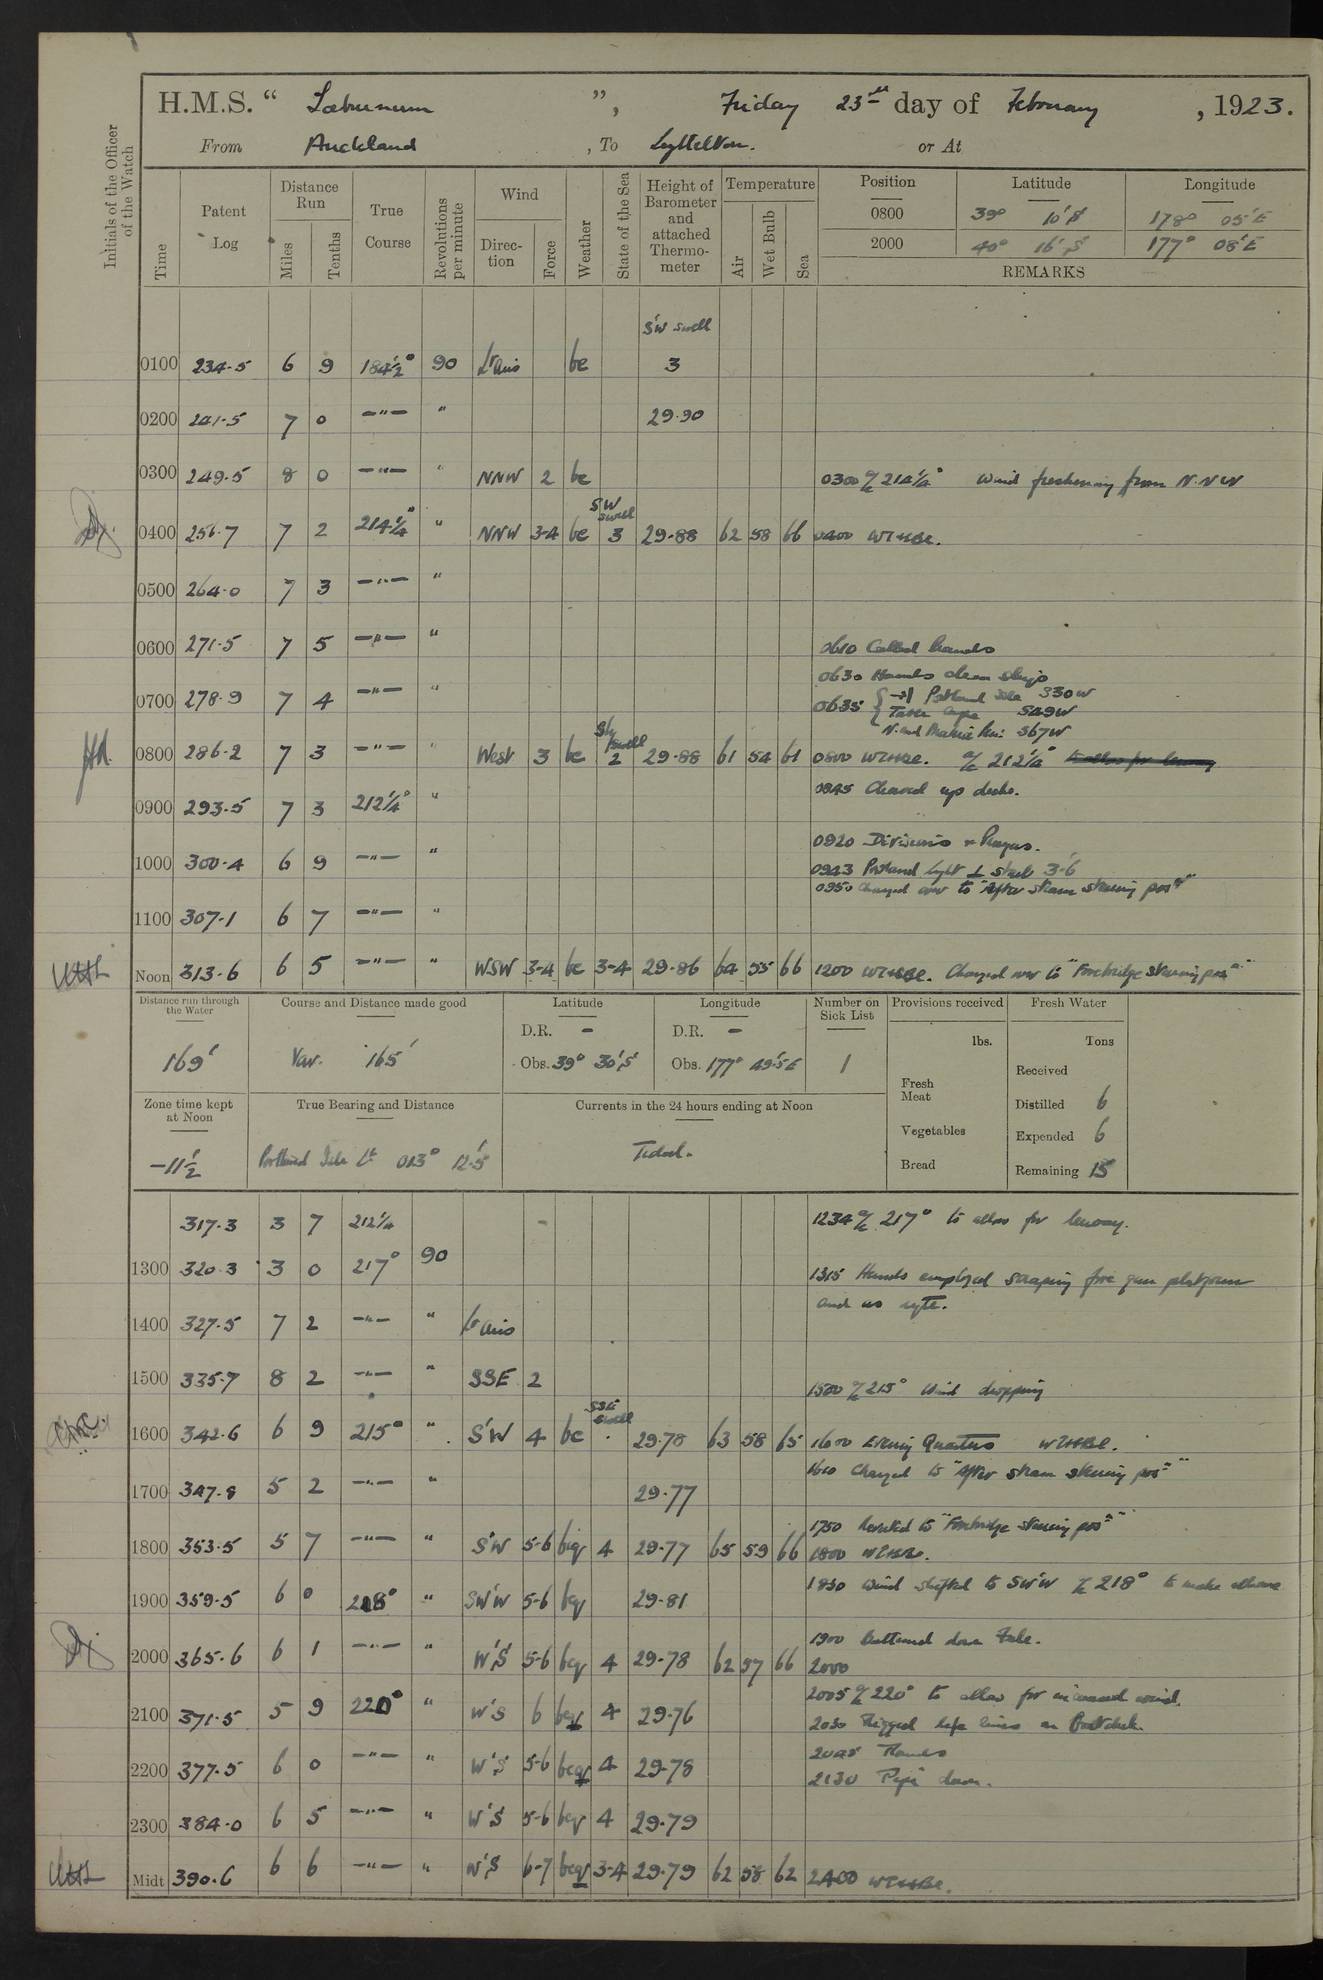 H.M.S. “ Laburnum ”, Friday 23rd day of February, 1923.
From Auckland, To Lyttelton. or At
Initials of the Officer of the Watch
Time
Patent Log
Distance Run
Miles
Tenths
True Course
Revolutions per minute
Wind
Direction
Force
Weather
State of the Sea
Height of Barometer and attached Thermometer
Temperature
Air
Wet Bulb
Sea
Position Latitude Longitude
0800 39° 10'S 178° 05'E
2000 40° 16'S 177° 08'E
REMARKS
S'W swell
0100 234.5 6 9 184½° 90 Lt airs bc 3
0200 241.5 7 0 —"— " 29.90
0300 249.5 8 0 —"— " NNW 2 bc 0300 a/c 214¼° Wind freshening from N.N.W
SW swell
0400 256.7 7 2 214¼° " NNW 3-4 bc 3 29.88 62 58 66 0400
0500 264.0 7 3 —"— "
0600 271.5 7 5 —"— " 0610 Called hands
0630 Hands clean ships
0700 278.9 7 4 —"— " 0635 Portland Isle 330W
Table Cape S49W
S67W
swell
0800 286.2 7 3 —"— " West 3 bc 2 29.88 61 54 61 0800 a/c 212¼° to allow for leeway
0845 Cleared up decks.
0900 293.5 7 3 212¼° "
0920 Divisions & Prayers.
1000 300.4 6 9 —"— " 0943 Portland Light ⊥ Starb 3.6'
0950 Changed over to "After steam steering posn"
1100 307.1 6 7 —"— "
Noon 313.6 6 5 —"— " WSW 3-4 bc 3-4 29.86 64 55 66 1200 Changed over to "Forebridge steering posn"
Distance run through the Water
169'
Course and Distance made good
Var. 165'
Latitude
D.R. –
Obs. 39° 30'S
Longitude
D.R. –
Obs. 177° 49.5'E
Number on Sick List
1
Provisions received
lbs.
Fresh Meat
Vegetables
Bread
Fresh Water
Tons
Received
Distilled 6
Expended 6
Remaining 15
Zone time kept at Noon
-11½
True Bearing and Distance
Portland Isle Lt 013° 12.5'
Currents in the 24 hours ending at Noon
Tidal.
317.3 3 7 212¼ 1234 a/c 217° to allow for leeway.
1300 320.3 3 0 217° 90
1315 Hands employed scraping fore gun platform
and as reqte.
1400 327.5 7 2 —"— " Lt airs
1500 335.7 8 2 —"— " SSE 2 1500 a/c 215° Wind dropping
SSE swell
1600 342.6 6 9 215° " S'W 4 bc 29.78 63 58 65 1600 Evening Quarters
1610 Changed to "After steam steering posn"
1700 347.8 5 2 —"— " 29.77
1750 Reverted to "Forebridge steering posn"
1800 353.5 5 7 —"— " S'W 5-6 4 29.77 65 59 66 1800
1830 Wind shifted to SW'W a/c 218° to make allowce
1900 359.5 6 0 218° " SW'W 5-6 bcq 29.81
1900 Battened down
2000 365.6 6 1 —"— " W'S 5-6 bcq 4 29.78 62 57 66 2000
2005 a/c 220° to allow for increased wind.
2100 371.5 5 9 220° " W'S 6 bcq 4 29.76 2030 Rigged life lines on
2045 Rounds
2200 377.5 6 0 —"— " W'S 5-6 bcq 4 29.78 2130 Pipe down.
2300 384.0 6 5 —"— " W'S 5-6 bcq 4 29.79
Midt 390.6 6 6 —"— " W'S 6-7 bcq 3-4 29.79 62 58 62 2400